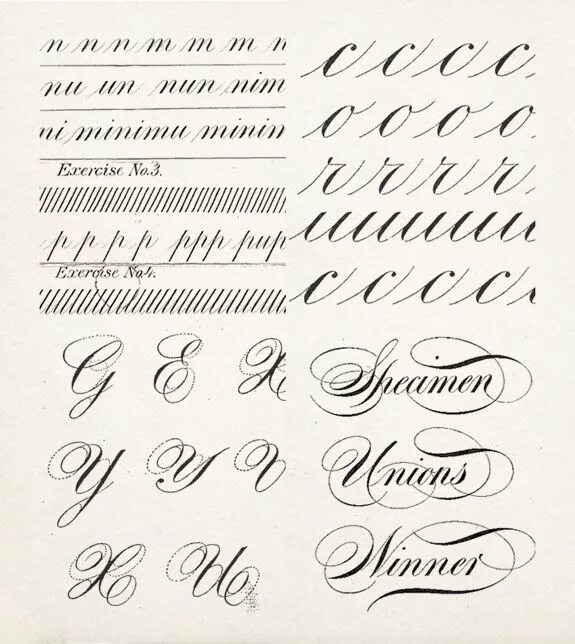 n n n m m m n
nu un nun nim
ni minimu minin
Exercise No.3.
p p p p ppp pup
Exercise No4.
c c c c
o o o o
r r r r
u u u u u u
c c c c
G E X
Y Y V
X U
Specimen
Unions
Winner